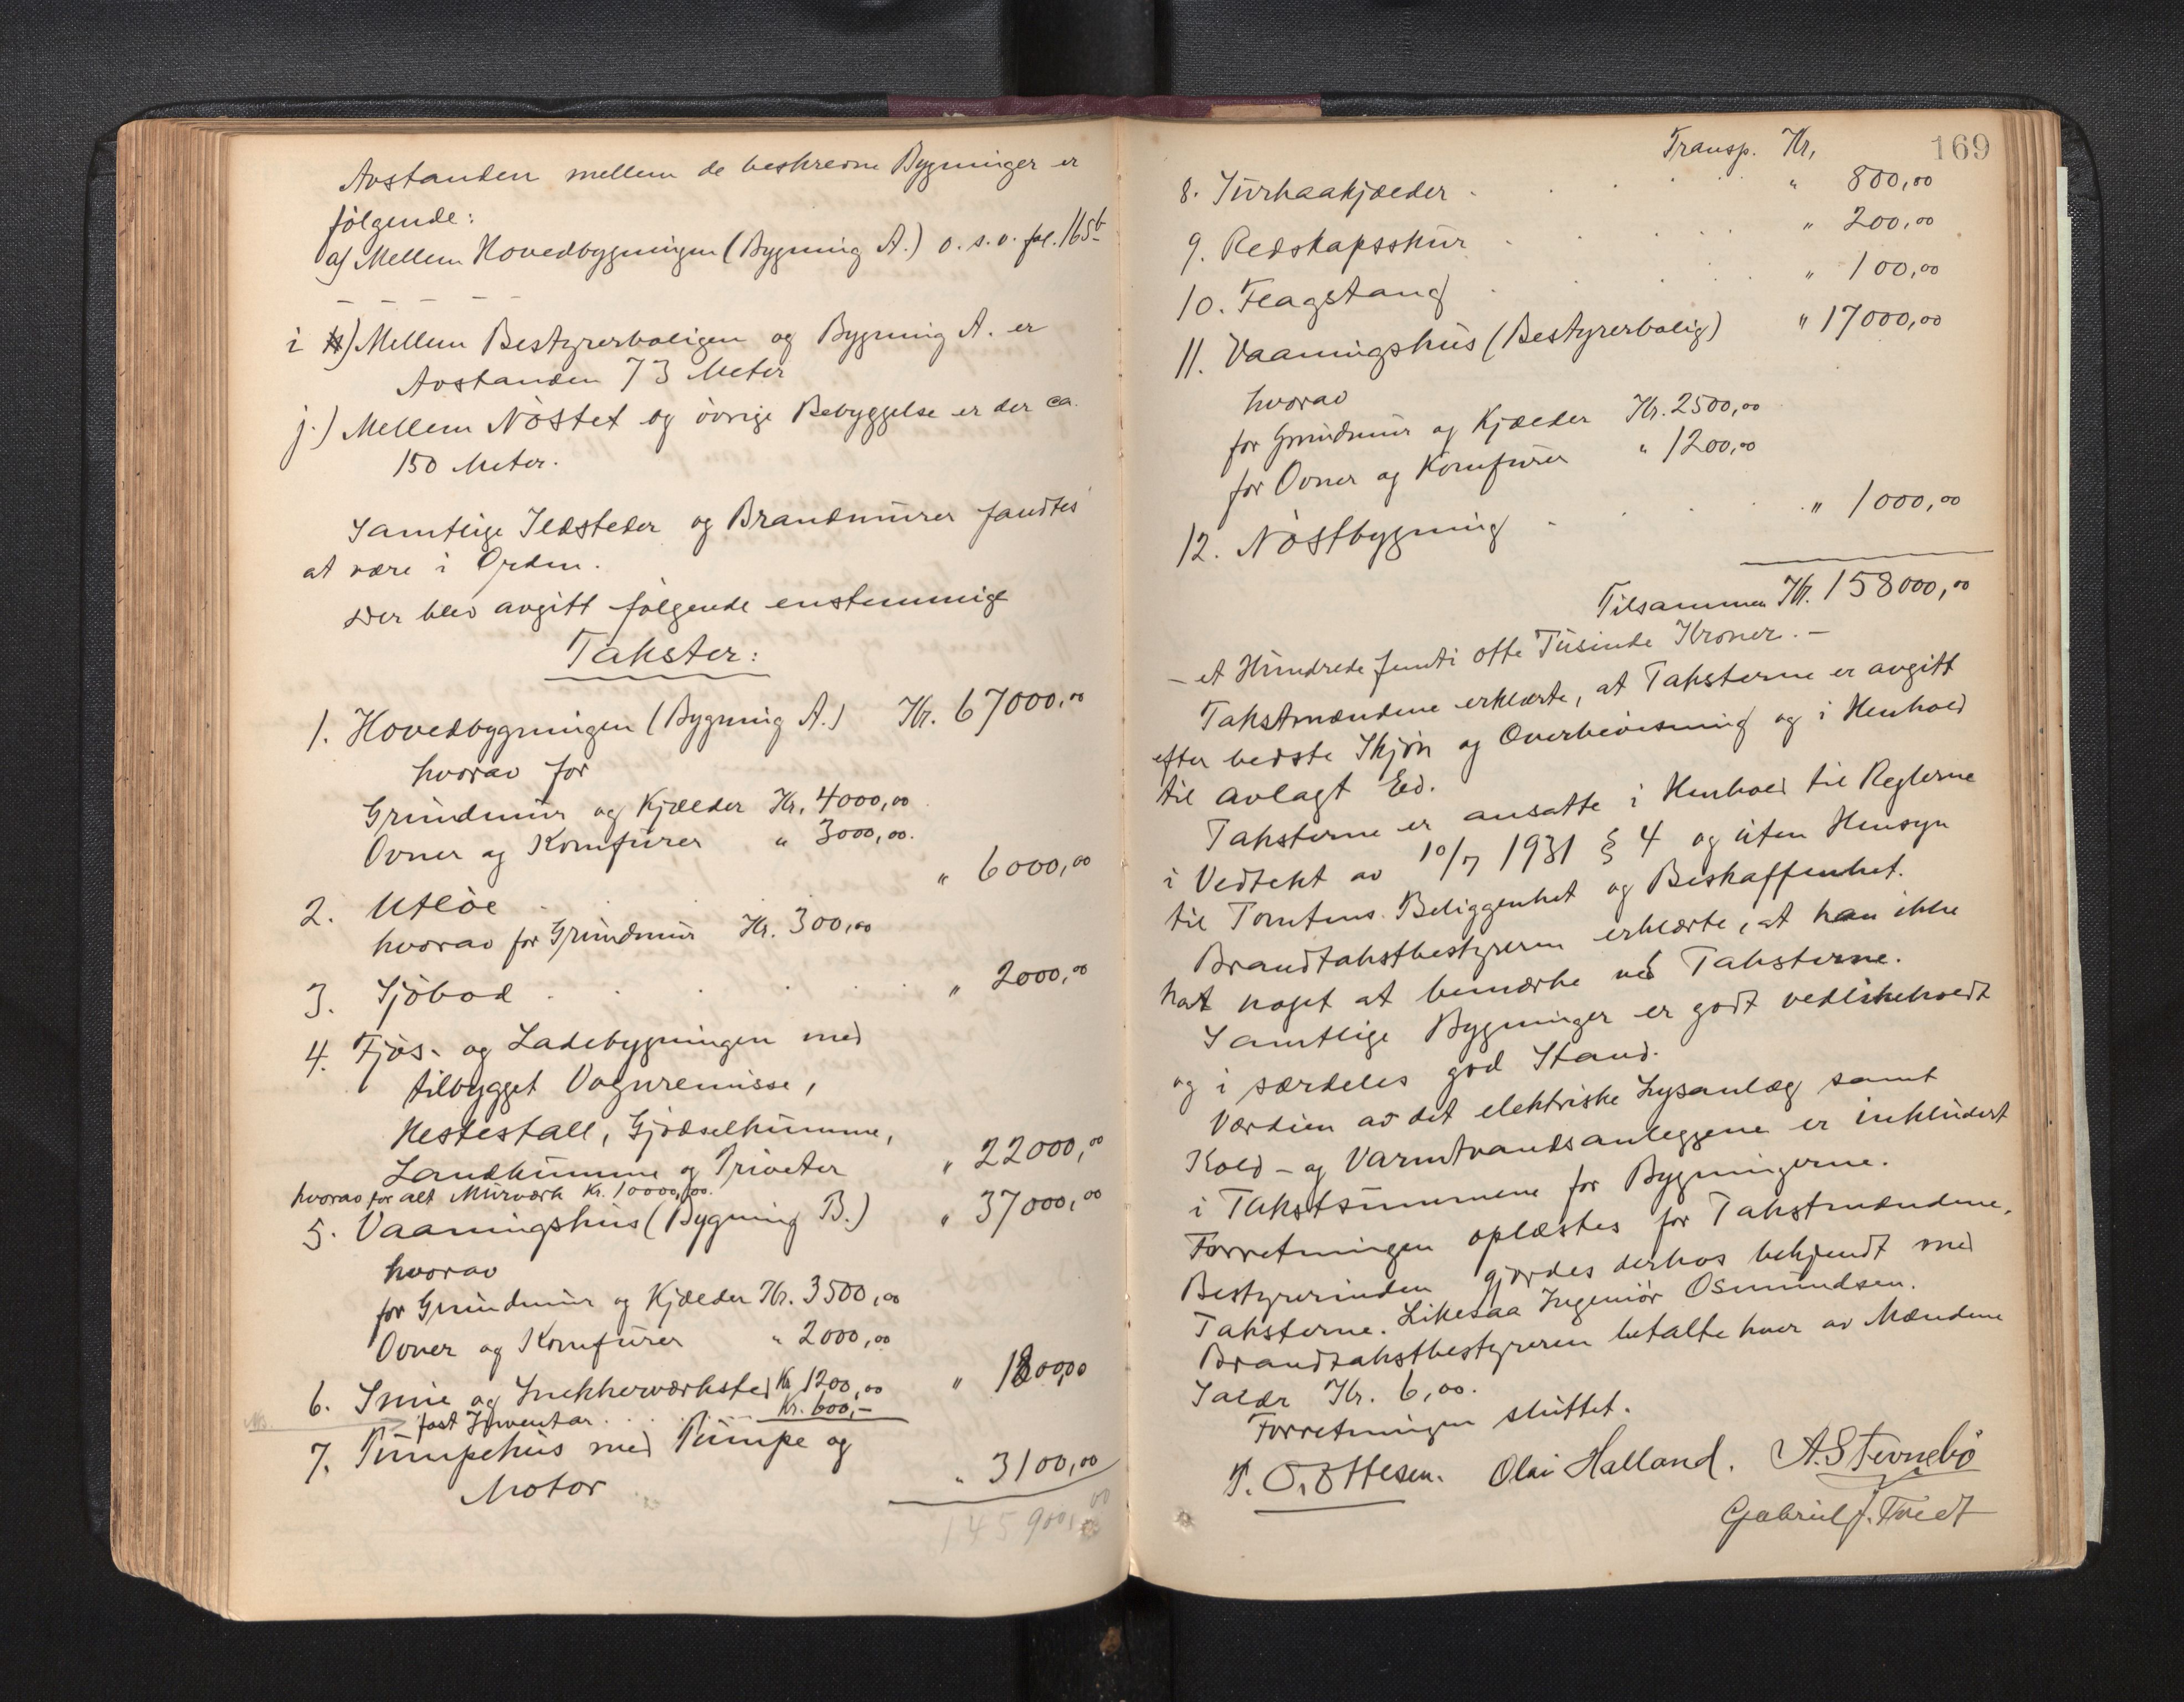 Avstanden mellem de beskrevne Bygninger er
følgende:
a) Mellem Hovedbygningen (Bygning A.) o. s. v. fol. 165b
— — — —
i) Mellem Bestyrerboligen og Bygning A. er
Avstanden 73 Meter
j.) Mellem Nøstet og øvrige Bebyggelse er der ca.
150 Meter.
Samtlige Ildsteder og Brandmurer fandtes
at være i Orden.
Der blev avgitt følgende enstemmige
Takster:
1. Hovedbygningen (Bygning A.) Kr. 67000,00
hvorav for
Grundmur og Kjælder Kr. 4000,00
Ovner og Komfurer " 3000,00.
2. Utløe . " 6000,00
hvorav for Grundmur Kr. 300,00
3. Sjøbod . . . . " 2000,00
4. Fjøs- og Ladebygningen med
tilbygget Vognremisse,
Hestestall, Gjødselkumme,
Landkumme og Priveter " 22000,00
hvorav for alt Murværk Kr. 10000,00.
5. Vaaningshus (Bygning B.) " 37000,00
hvorav
for Grundmur og Kjælder Kr. 3500,00
Ovner og Komfurer " 2000,00
6. Smie og Snekkerværksted Kr. 1200,00 " 1800,00
NB. fast Inventar . . . Kr. 600,-
7. Pumpehus med Pumpe og
Motor . " 3100,00
145900,00
169
Transp. Kr,
8. Turhaakjælder . . . . " 800,00
9. Redskapsskur . . . . " 200,00
10. Flagstang . . . . " 100,00
11. Vaaningshus (Bestyrerbolig) " 17000,00
hvorav
for Grundmur og Kjælder Kr. 2500,00
for Ovner og Komfurer " 1200,00
12. Nøstbygning . . . . " 1000,00
Tilsammen Kr. 158000,00
- et Hundrede femti otte Tusinde Kroner. -
Takstmændene erklærte, at Taksterne er avgitt
efter bedste Skjøn og Overbevisning og i Henhold
til avlagt Ed.
Taksterne er ansatte i Henhold til Reglerne
i Vedtekt av 10/7 1931 § 4 og uten Hensyn
til Tomtens Beliggenhet og Beskaffenhet.
Brandtakstbestyreren erklærte, at han ikke
hat noget at bemærke ved Taksterne.
Samtlige Bygninger er godt vedlikeholdt
og i særdeles god Stand.
Værdien av det elektriske Lysanlæg samt
Kold- og Varmtvandsanleggene er inkludert
i Takstsummene for Bygningerne.
Forretningen oplæstes for Takstmændene,
Bestyrerinden gjordes derhos bekjendt med
Taksterne. Likesaa Ingeniør Osmundsen.
Brandtakstbestyreren betalte hver av Mændene
Salær Kr. 6,00.
Forretningen sluttet.
T. O. Ottesen. Olai Halland. A. Stevnebø
Gabriel J. Tvedt